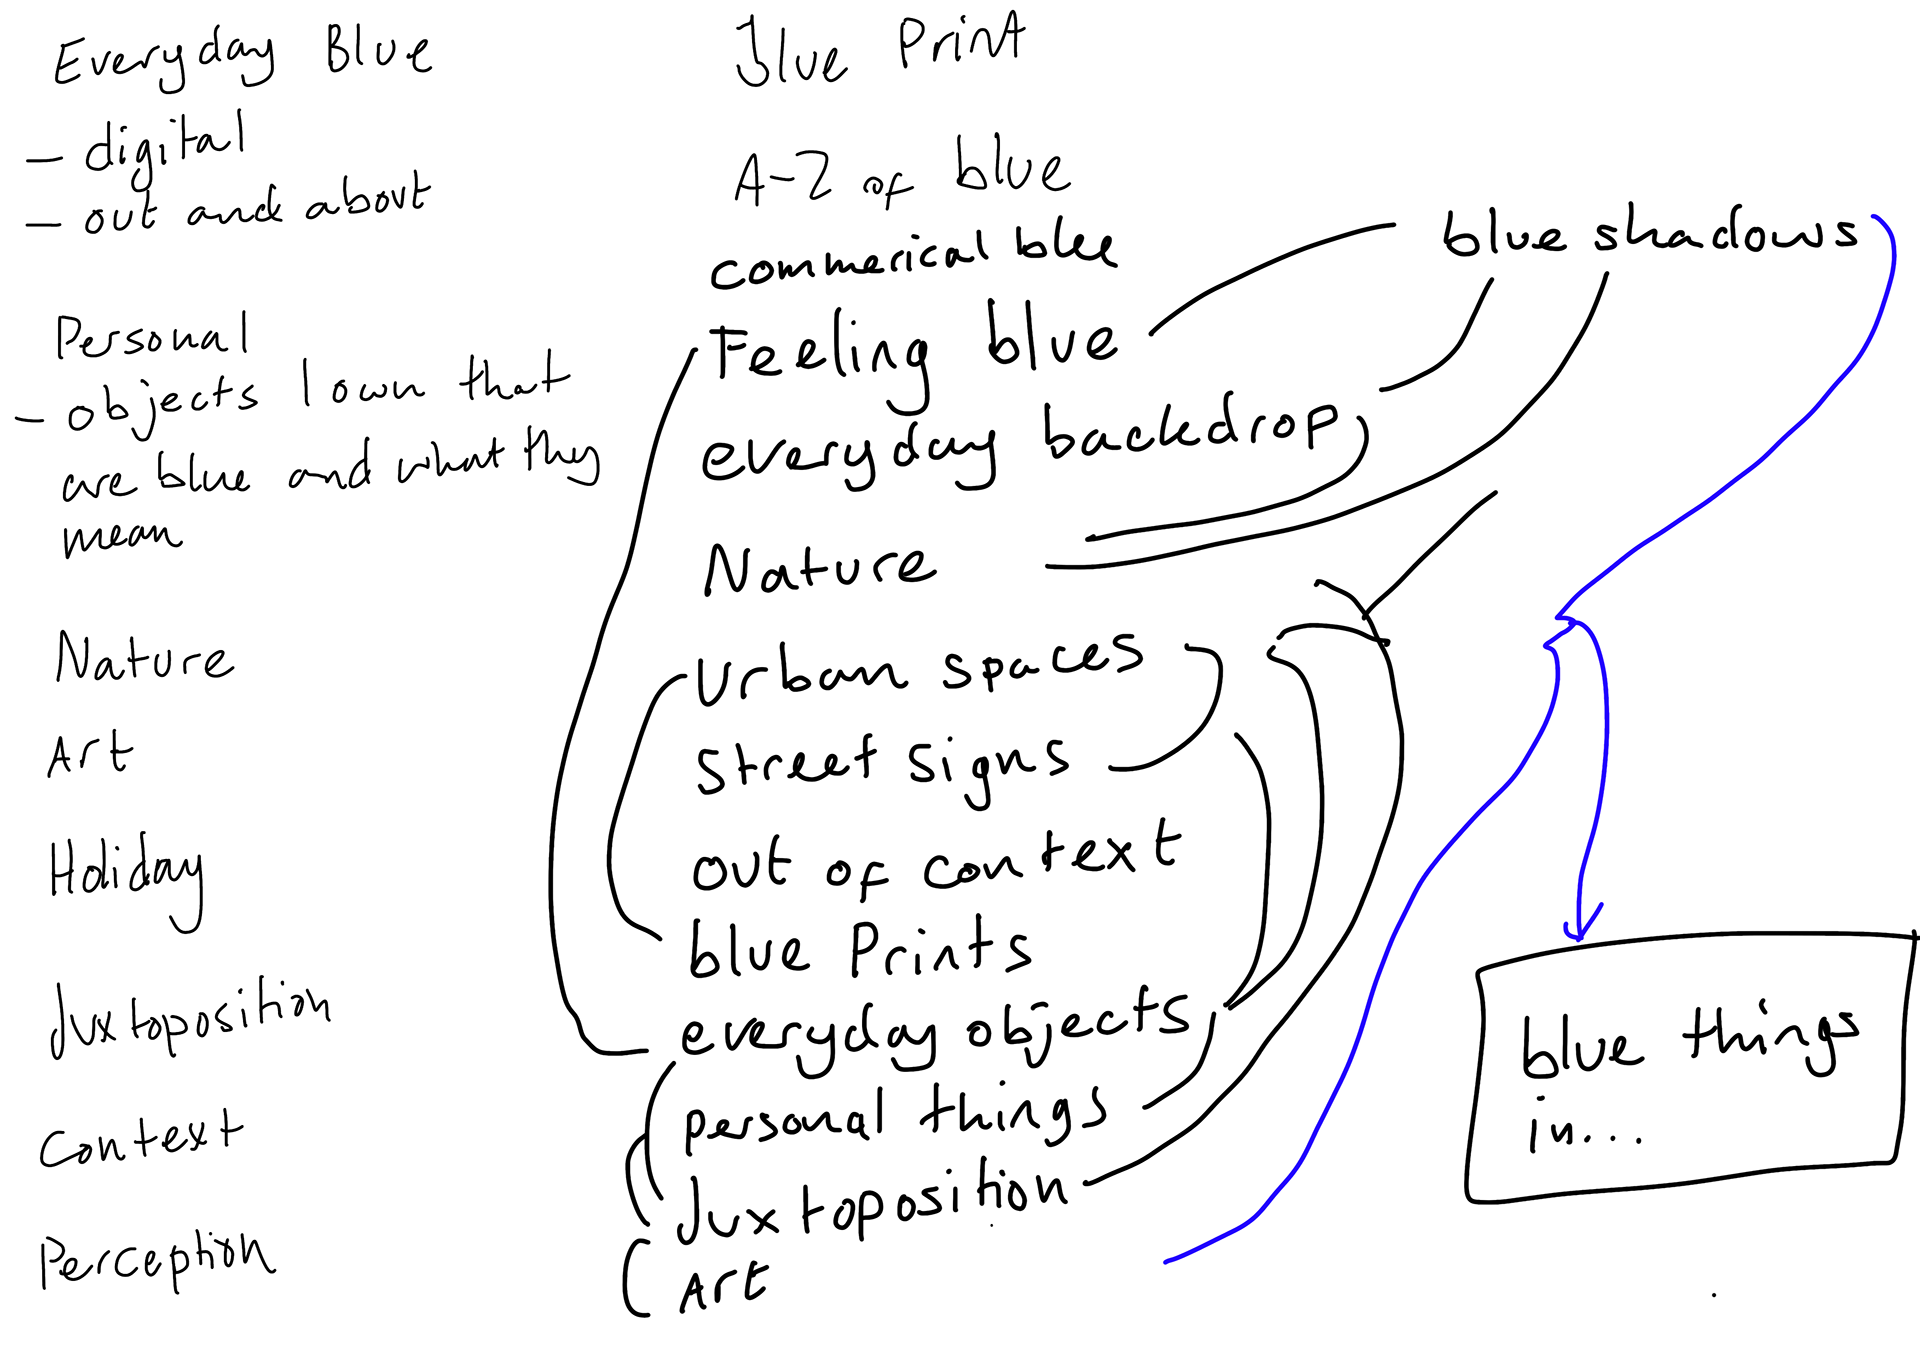 Everyday Blue
- digital
- out and about
Personal
- objects I own that
are blue and what they
mean
Nature
Art
Holiday
Juxtoposition
Context
Perception
Blue Print
A-Z of blue
commerical blue
Feeling blue
everyday backdrop
Nature
Urban spaces
Street Signs
out of context
blue Prints
everyday objects
personal things
Juxtoposition
Art
blue shadows
blue things
in...